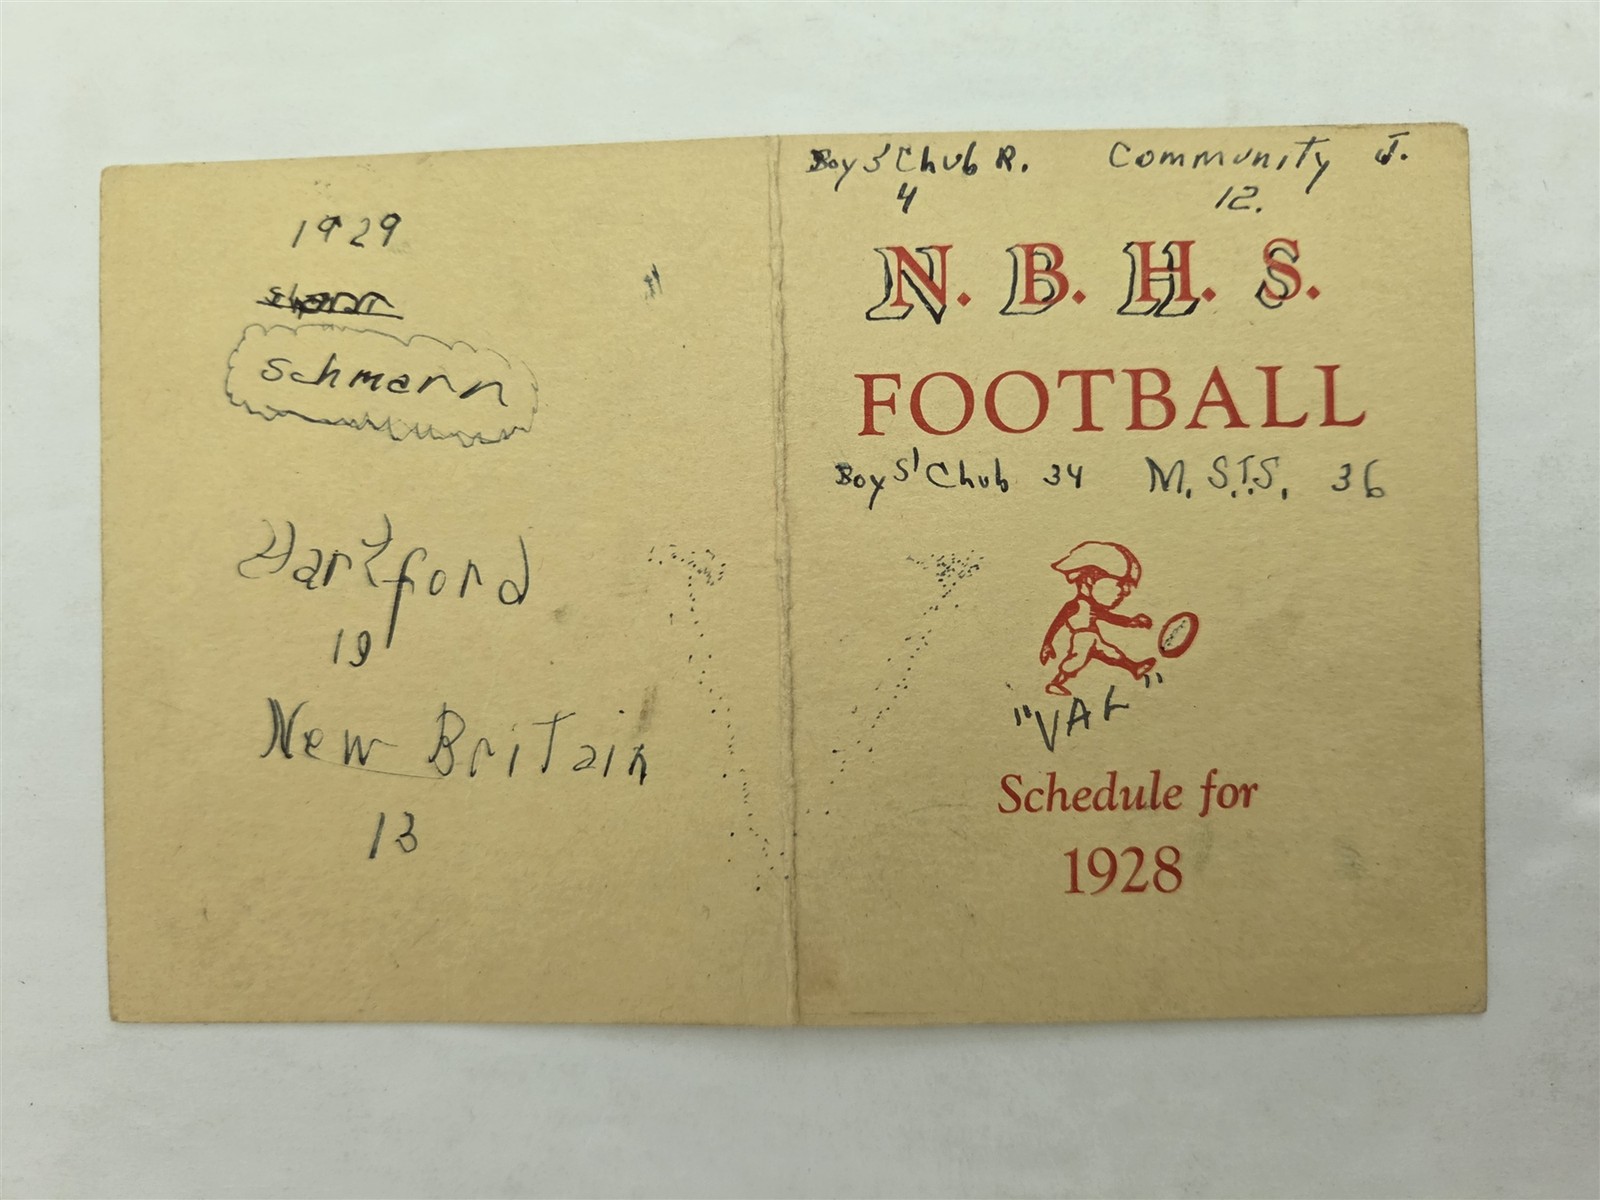 1929
Schmann
Hartford
19
New Britain
13
Boys' Chub R. Community J.
4 12.
N. B. H. S.
FOOTBALL
Boys' Chub 34 M. S.T.S. 36
"VAL"
Schedule for
1928